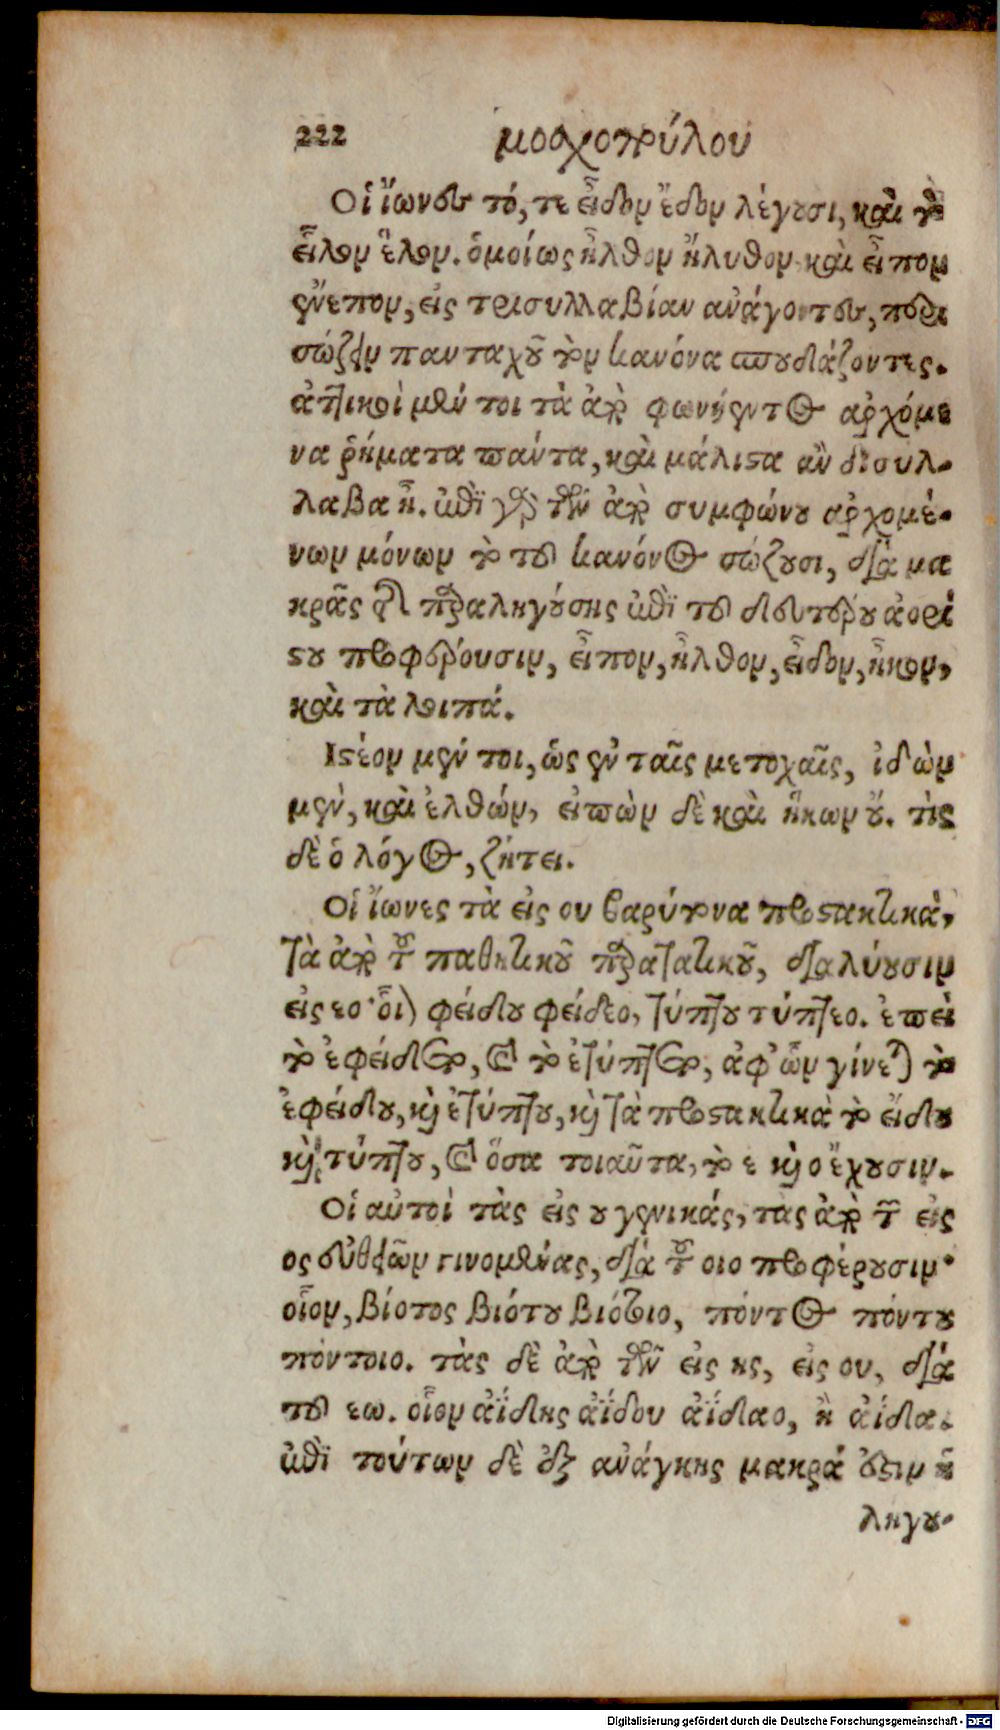 222 μοσχοπούλου
Οἱ ἴωνες τό, τε εἶδον ἔδον λέγουσι, καὶ τὸ
εἷλον ἕλον. ὁμοίως ἦλθον ἤλυθον καὶ εἶπον
ἔνεπον, εἰς τρισυλλαβίαν ἀνάγοντες,
σώζειν πανταχοῦ τὸν κανόνα σπουδάζοντες.
ἀττικοὶ μέν τοι τὰ ἀπὸ φωνήεντος ἀρχόμε
να ῥήματα πάντα, καὶ μάλιστα ἂν δισυλ-
λαβα ᾖ. ἐπὶ γὰρ τῶν ἀπὸ συμφώνου ἀρχομέ-
νων μόνων τὸ τοῦ κανόνος σώζουσι, διὰ μα
κρᾶς δὲ παραληγούσης ἐπὶ τοῦ δευτέρου ἀορί
στου προφέρουσιν, εἶπον, ἦλθον, εἶδον, ἧκον,
καὶ τὰ λοιπά.
Ιστέον μέν τοι, ὡς ἐν ταῖς μετοχαῖς, ἰδὼν
μὲν, καὶ ἐλθών, εἰπὼν δὲ καὶ ἥκων οὔ. τίς
δὲ ὁ λόγος, ζήτει.
Οἱ ἴωνες τὰ εἰς ου βαρύτονα προστακτικὰ,
τὰ ἀπὸ τοῦ παθητικοῦ παρατατικοῦ, διαλύουσιν
εἰς εο· οἷον φείδου φείδεο, τύπτου τύπτεο. ἐπεὶ
τὸ ἐφείδου, καὶ τὸ ἐτύπτου, ἀφ’ ὧν γίνεται τὸ
ἐφείδου, καὶ ἐτύπτου, καὶ τὰ προστακτικὰ τὸ είδου
καὶ τύπτου, καὶ ὅσα τοιαῦτα, τὸ ε καὶ ο ἔχουσιν.
Οἱ αὐτοὶ τὰς εἰς ου γενικάς, τὰς ἀπὸ τῶν εἰς
ος εὐθειῶν γινομένας, διὰ τοῦ οιο προφέρουσιν·
οἷον, βίοτος βιότου βιότοιο, πόντος πόντου
πόντοιο. τὰς δὲ ἀπὸ τῶν εἰς ης, εἰς ου, διὰ
τοῦ εω. οἷον ἀΐδης ἀΐδου ἀΐδαο, ἢ ἀίδα.
ἐπὶ τούτων δὲ ἐξ ἀνάγκης μακρά ἐστιν ἡ
ληγου-
Digitalisierung gefördert durch die Deutsche Forschungsgemeinschaft - DFG